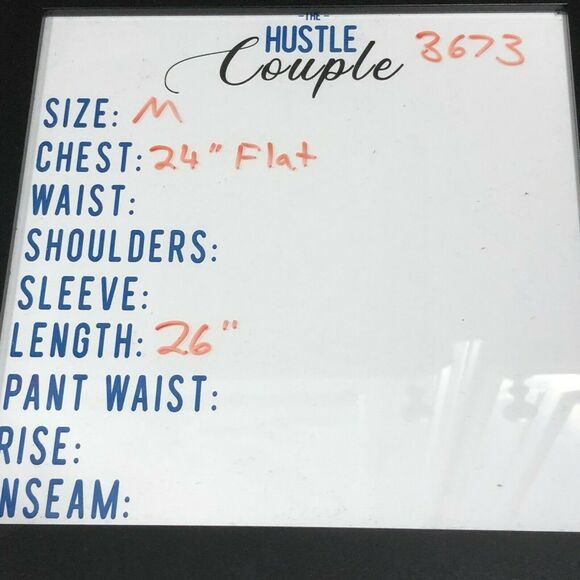 -THE-
HUSTLE
Couple 3673
SIZE: M
CHEST: 24" Flat
WAIST:
SHOULDERS:
SLEEVE:
LENGTH: 26"
PANT WAIST:
RISE:
NSEAM: